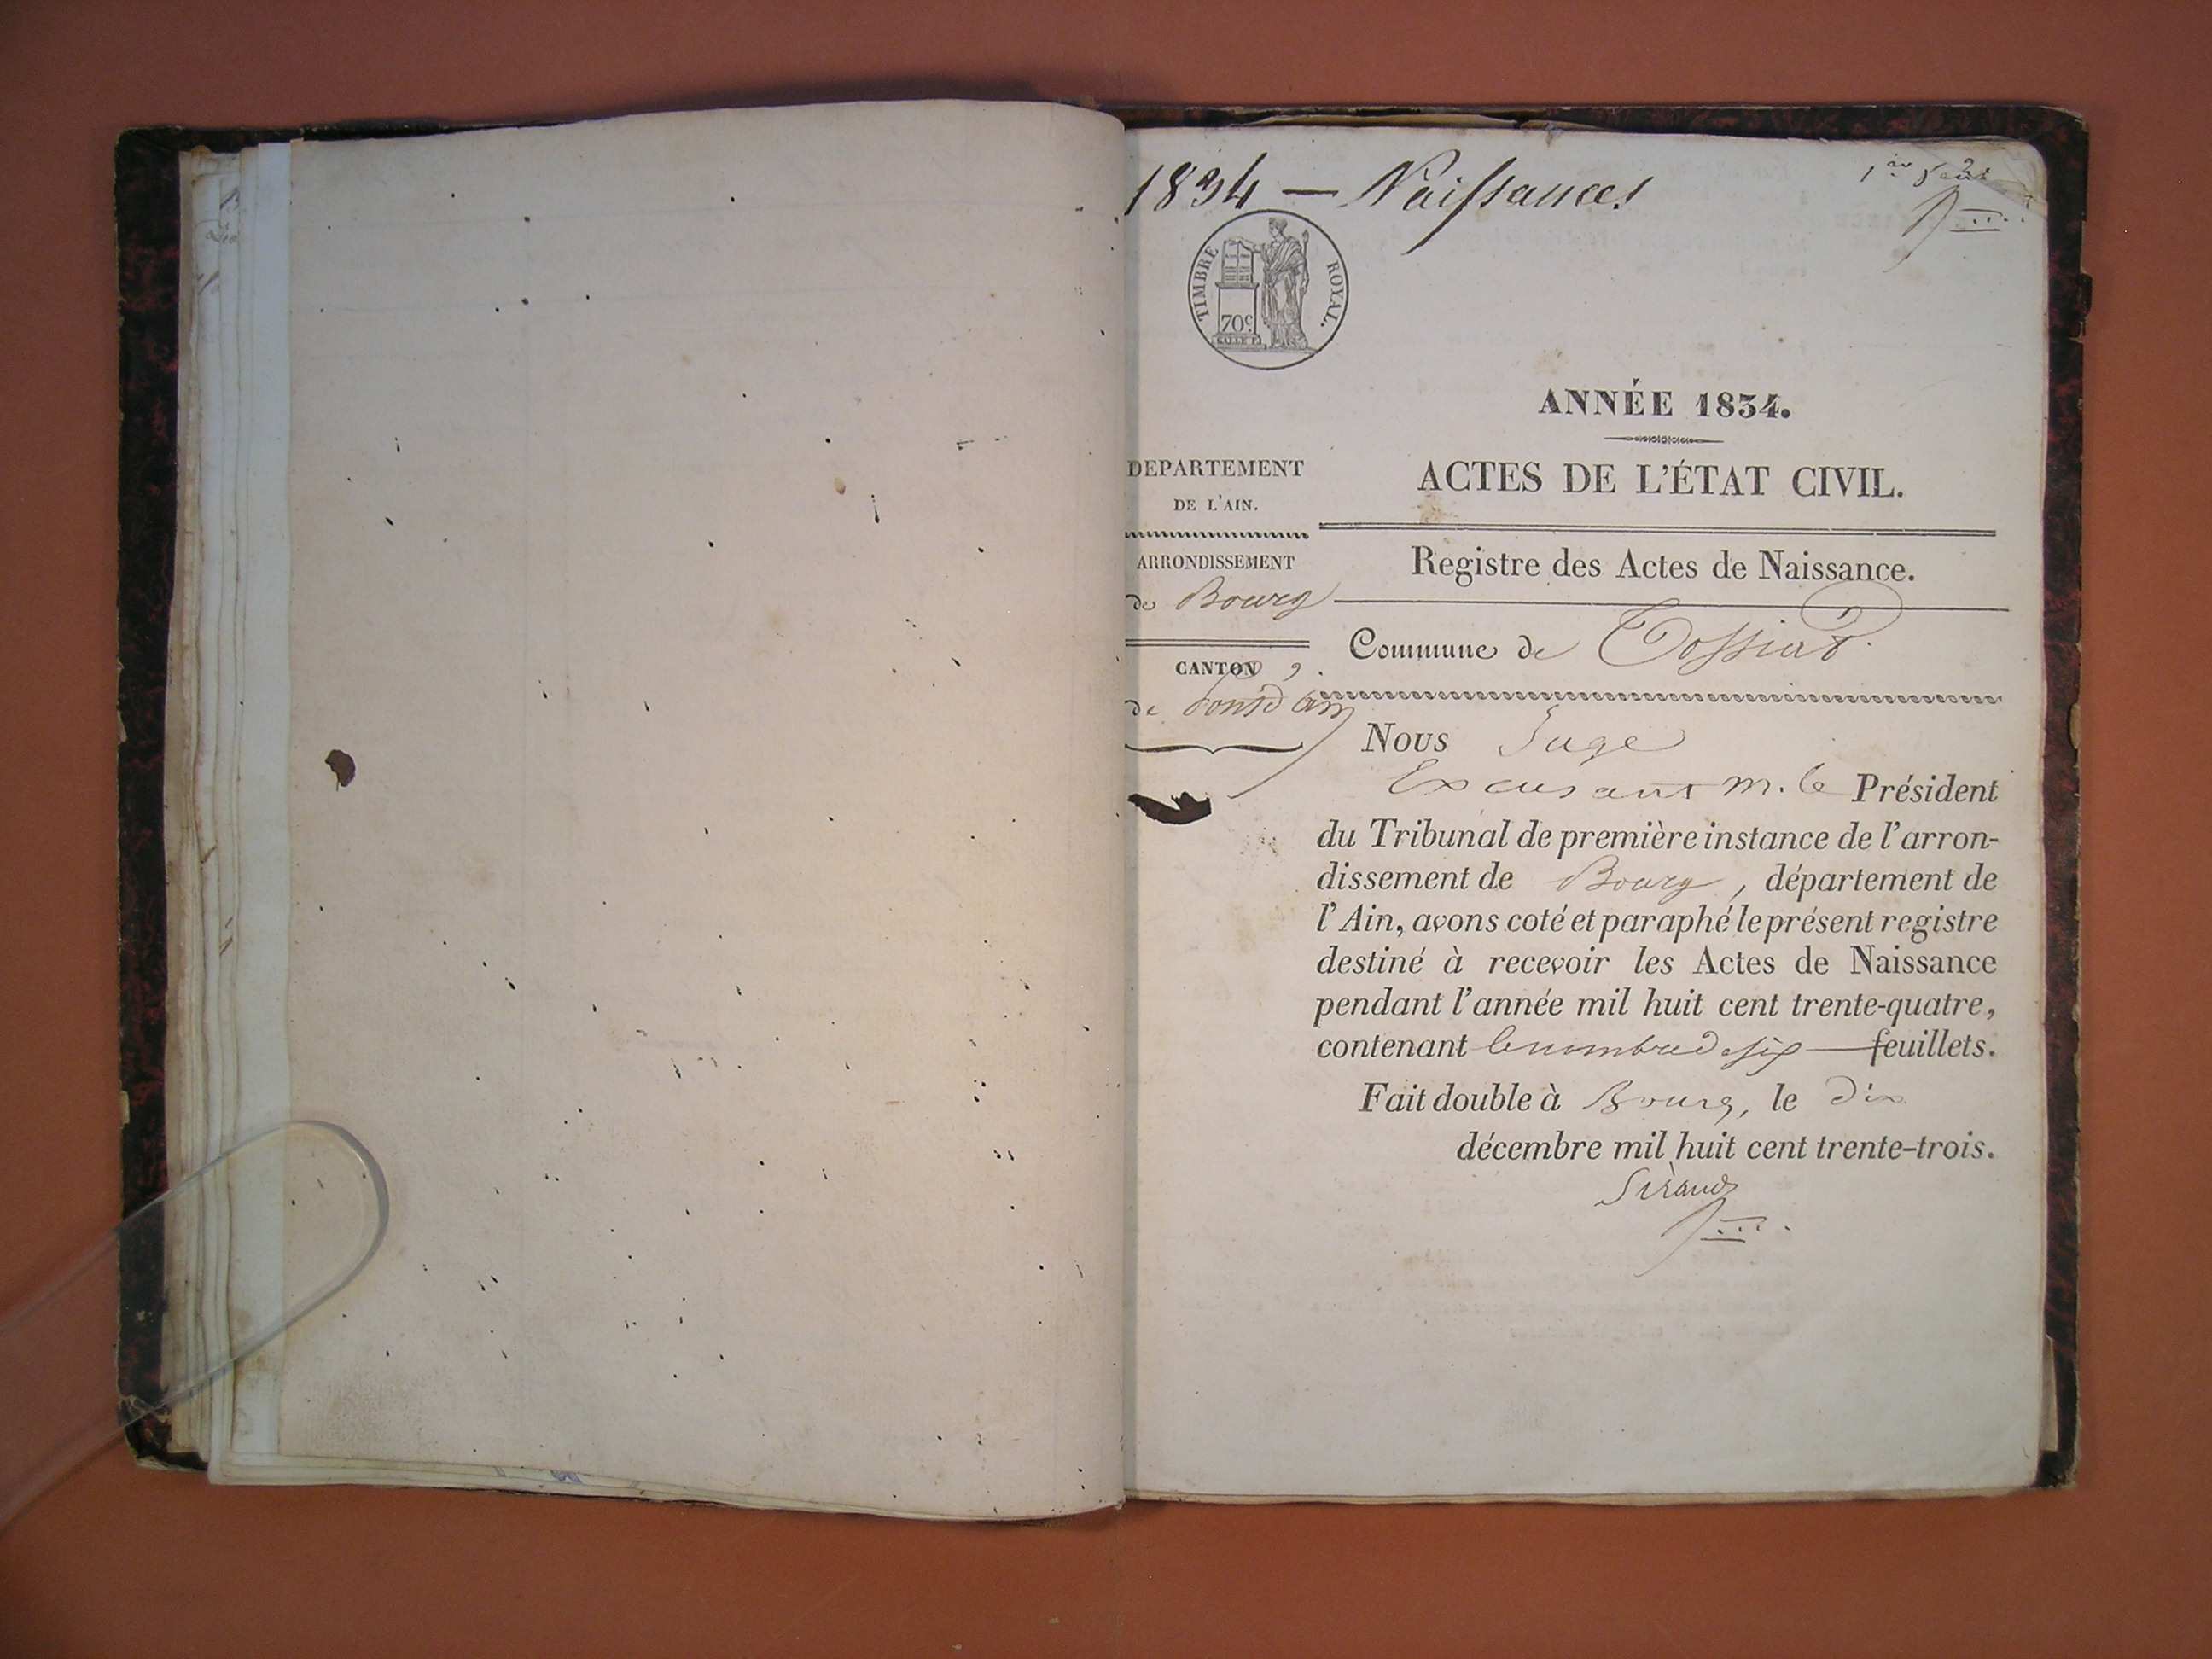 1834 — Naissances
1er feuil
TIMBRE ROYAL.
70c
ANNÉE 1834.
DEPARTEMENT
DE L'AIN.
ACTES DE L'ÉTAT CIVIL.
ARRONDISSEMENT
de Bourg
Registre des Actes de Naissance.
CANTON
de Pont d'ain
Commune de Tossiat
Nous Juge
Excusant m. le Président
du Tribunal de première instance de l'arron-
dissement de Bourg, département de
l'Ain, avons coté et paraphé le présent registre
destiné à recevoir les Actes de Naissance
pendant l'année mil huit cent trente-quatre,
contenant le nombre de six feuillets.
Fait double à Bourg, le dix
décembre mil huit cent trente-trois.
Sirand